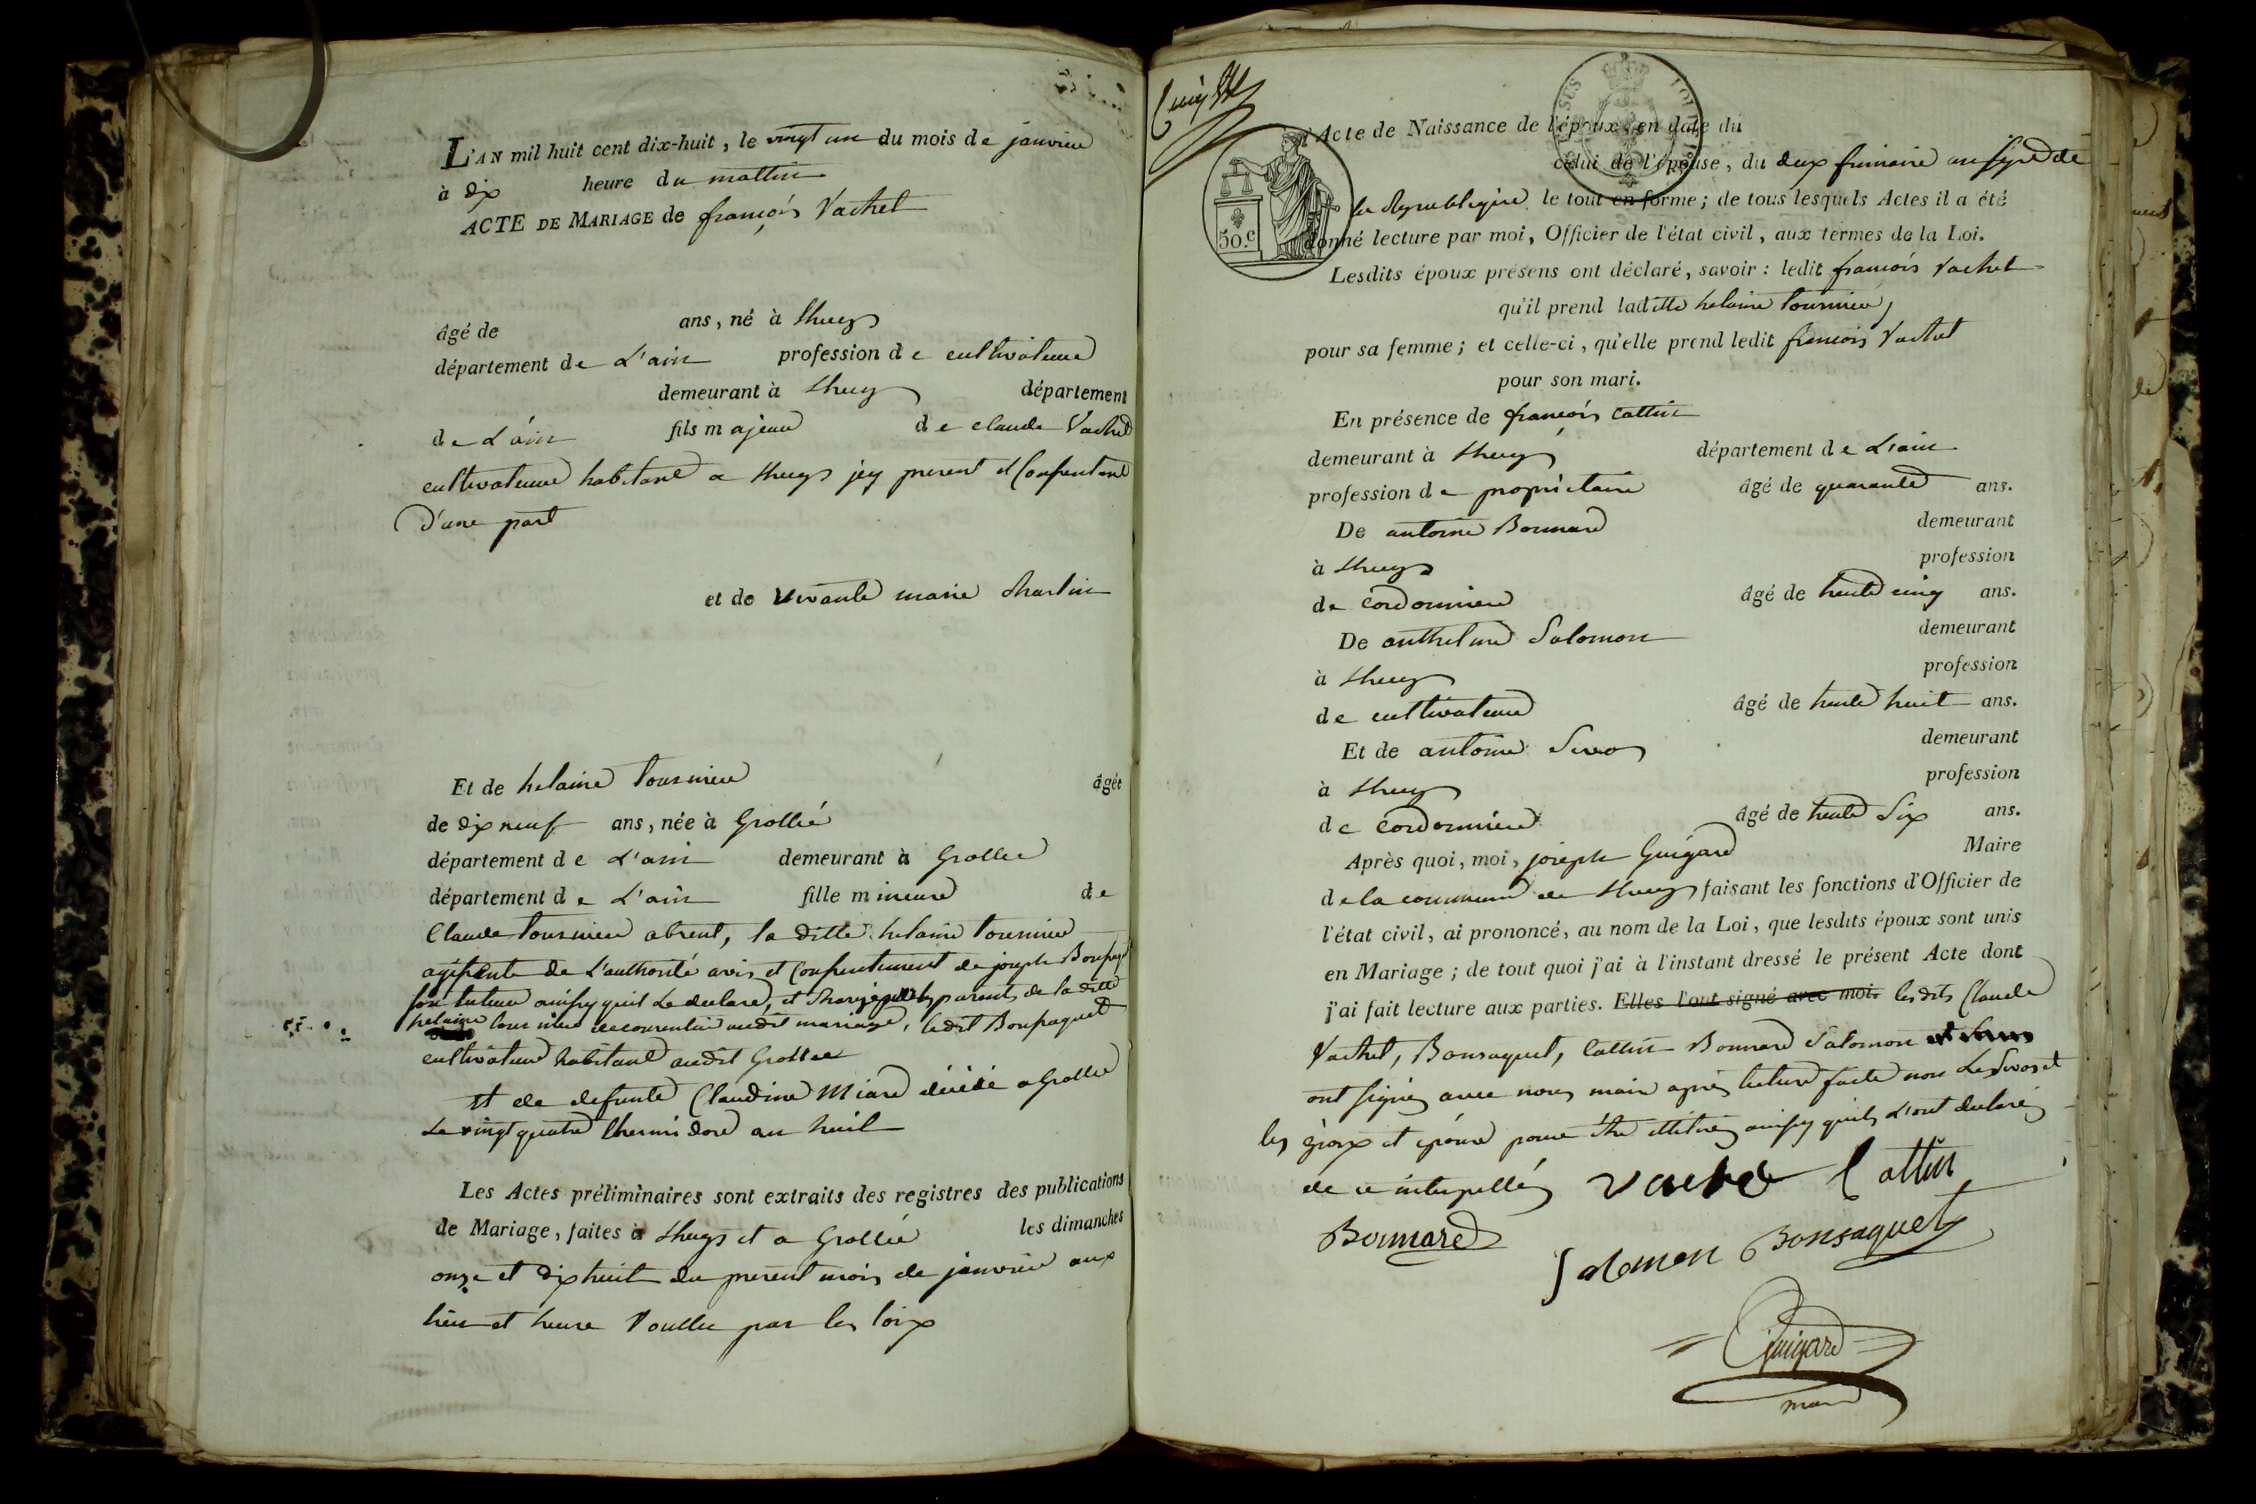 L'AN mil huit cent dix-huit, le vingt un du mois de janvier
à dix heure du mattin
ACTE DE MARIAGE de françois Vachet
âgé de ans, né à Lhuys
département de L'ain profession de cultivateur
demeurant à Lhuys département
de L'ain fils majeur de claude Vachet
cultivateur habitant a Lhuys jcy present et Consentant
D'une part
et de vivante marie Charlin
Et de helaine tournier âgée
de dix neuf ans, née à Grollié
département de L'ain demeurant à Grollee
département de L'ain fille mineure de
Claude tournier absent, la ditte helaine tournier
de L'authorité avis et Consentement de joseph Bonsaquet
son tuteur ainsy quil Le declare, et parents de la ditte
helaine tournier audit mariage, ledit Bonsaquet
cultivateur habitant audit Grollee
et de defunte Claudine Miard décédé a Grollee
Le vingt quatre thermidore an huit
Les Actes préliminaires sont extraits des registres des publications
de Mariage, faites à Lhuys et a Grollié les dimanches
onze et dix huit du present mois de janvier aux
lieu et heure Voullu par les loix
l'Acte de Naissance de l'époux, en date du
celui de l'épouse, du deux frimaire an sept de
la Republique le tout en forme; de tous lesquels Actes il a été
donné lecture par moi, Officier de l'état civil, aux termes de la Loi.
50.c
Lesdits époux présens ont déclaré, savoir: ledit francois Vachet
qu'il prend laditte helaine tournier
pour sa femme; et celle-ci, qu'elle prend ledit francois Vachet
pour son mari.
En présence de françois Cattin
demeurant à Lhuys département de L'ain
profession de propriétaire âgé de quarante ans.
De antoine Bonnard demeurant
à Lhuys profession
de cordonnier âgé de trente cinq ans.
De anthelme Salomon demeurant
à Lhuys profession
de cultivateur âgé de trente huit ans.
Et de antoine Sevoz demeurant
à Lhuys profession
de cordonnier âgé de trente Six ans.
Après quoi, moi, joseph Guigard Maire
de la commune de Lhuys faisant les fonctions d'Officier de
l'état civil, ai prononcé, au nom de la Loi, que lesdits époux sont unis
en Mariage; de tout quoi j'ai à l'instant dressé le présent Acte dont
j'ai fait lecture aux parties. Elles l'ont signé avec moi. lesdits Claude
Vachet, Bonsaquet, Cattin Bonnard Salomon
ont signés avec nous maire après lecture faite non Le Sevoz et
les époux et épouse pour être illitrés ainsy quils L'ont declarés
de ce interpellés Vachet Cattin
Bonnard Salomon Bonsaquet
Guigard
maire